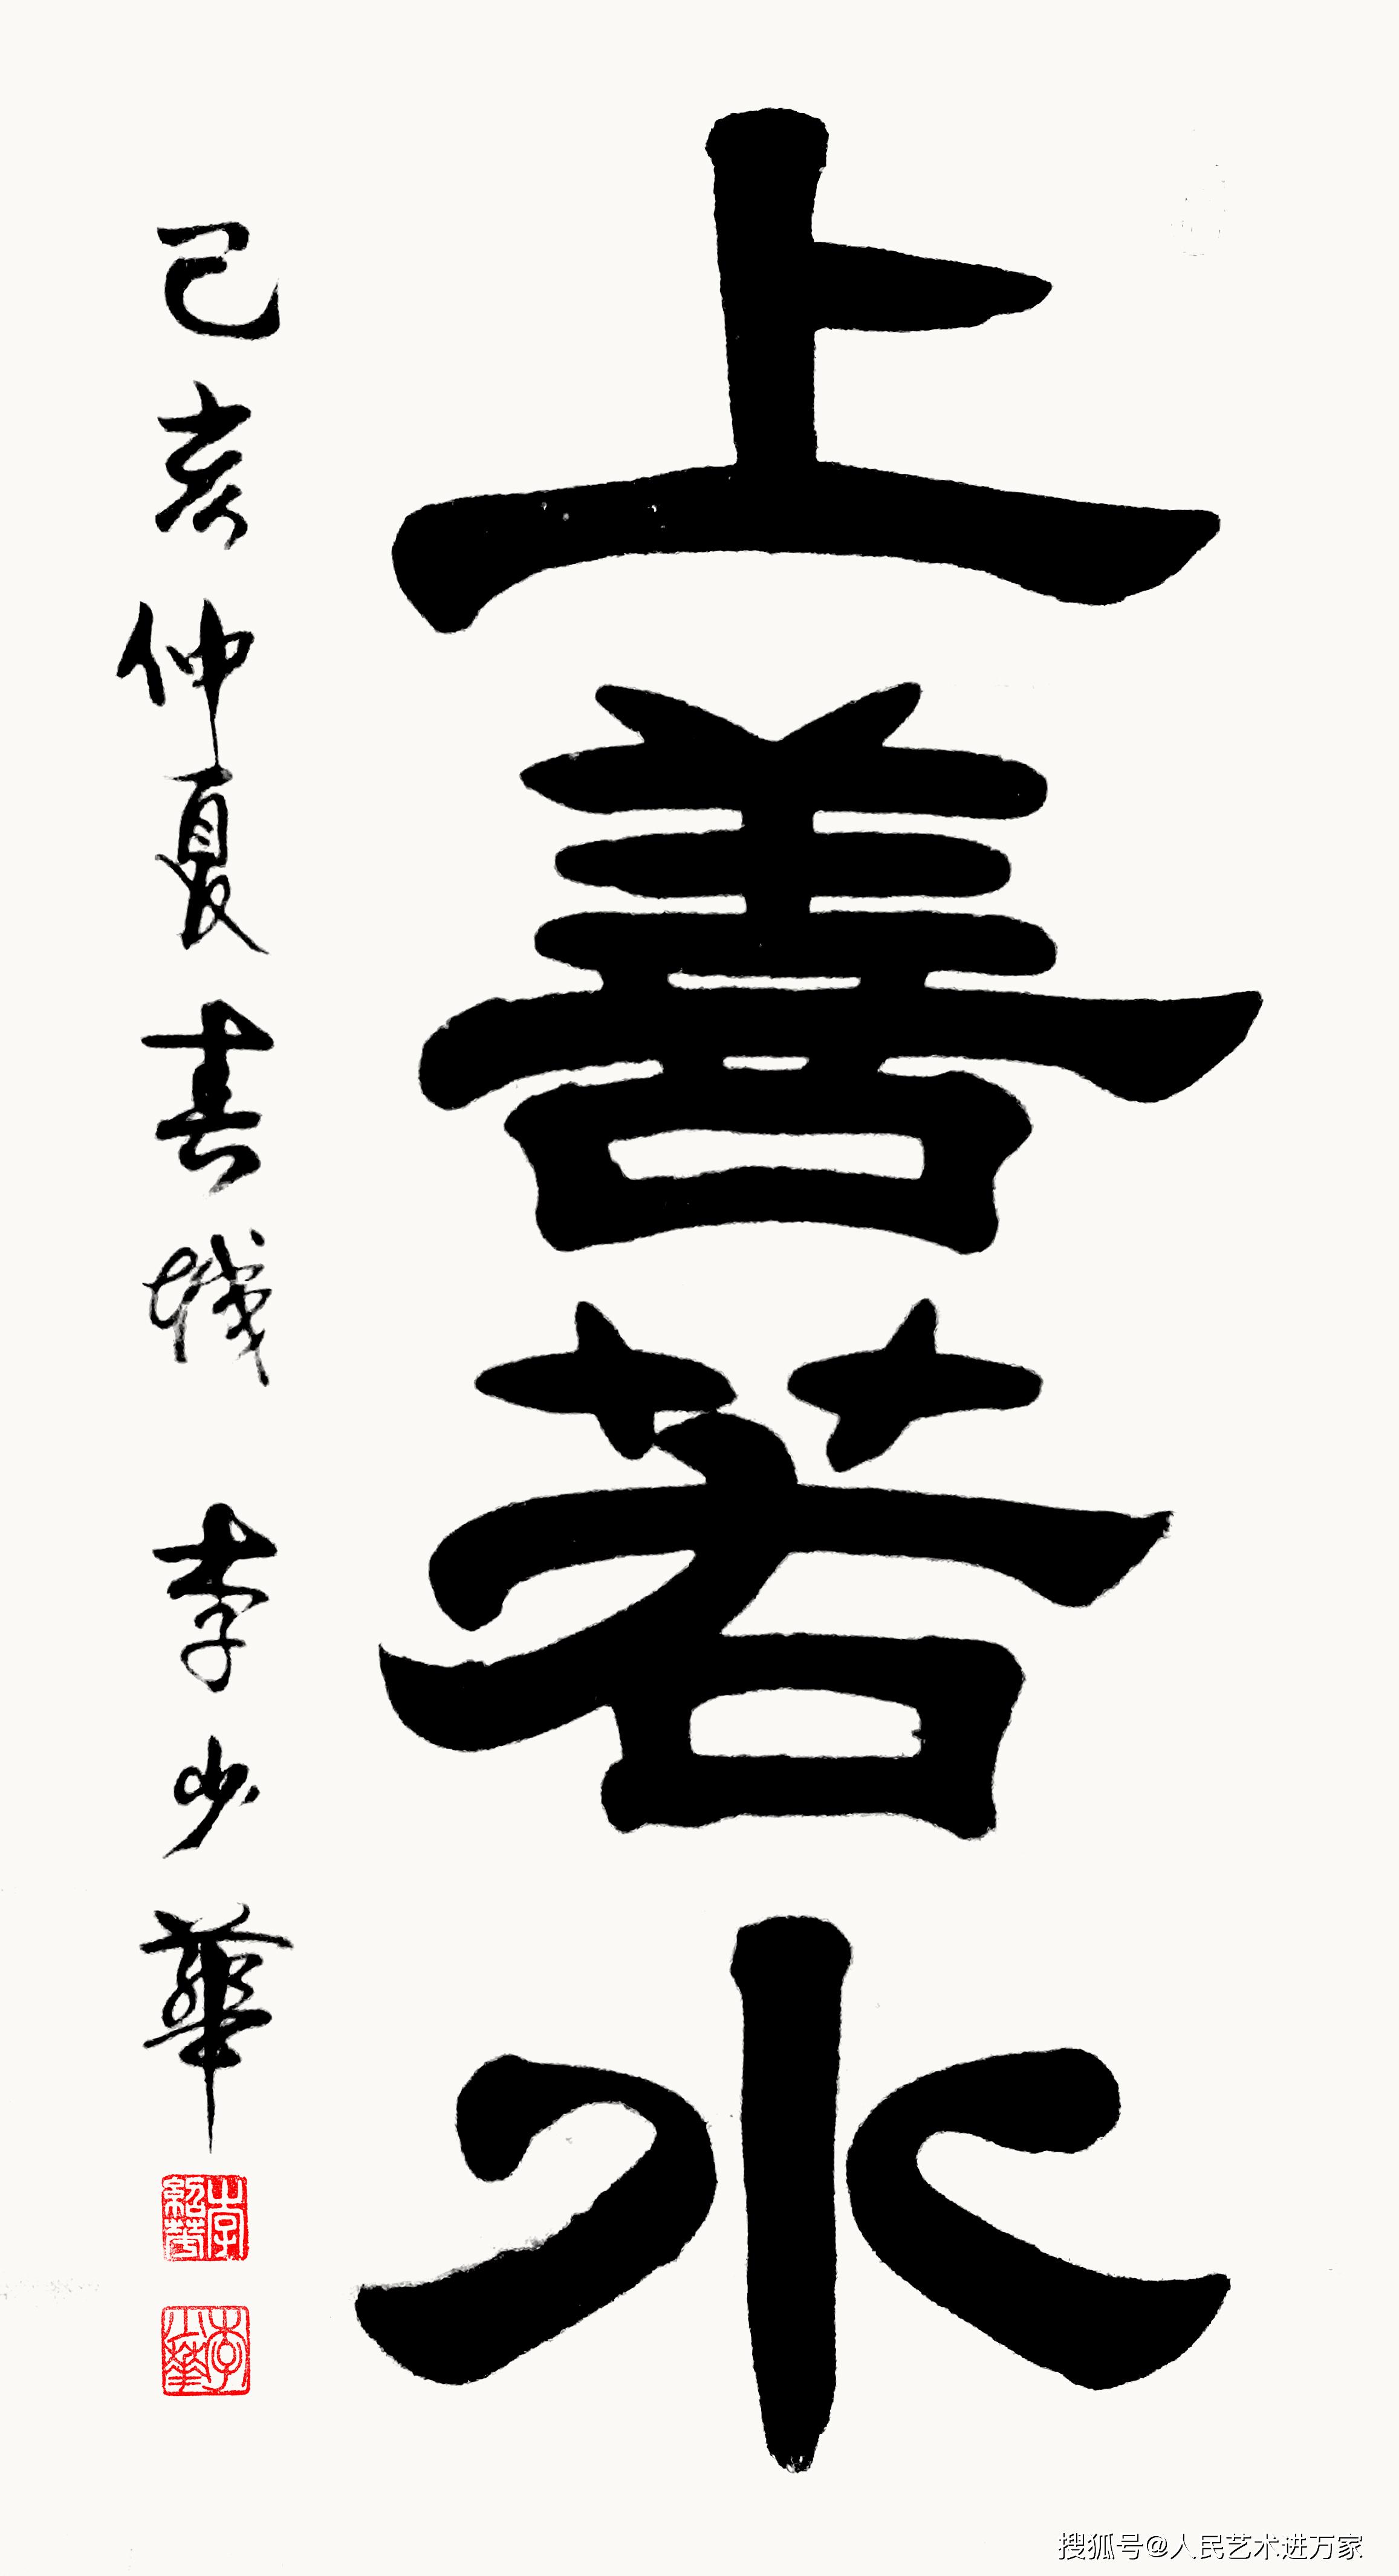 上善若水
己亥仲夏 李少華
李少華
搜狐号@人民艺术进万家